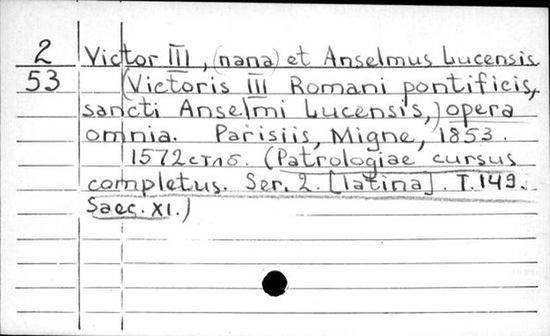 2 Victor III, (папа) et Anselmus Lucensis
53 (Victoris III Romani pontificis,
sancti Anselmi Lucensis,) opera
omnia. Parisiis, Migne, 1853.
1572 стлб. (Patrologiae cursus
completus. Ser. 2. [latina]. T. 149.
Saec. XI.)